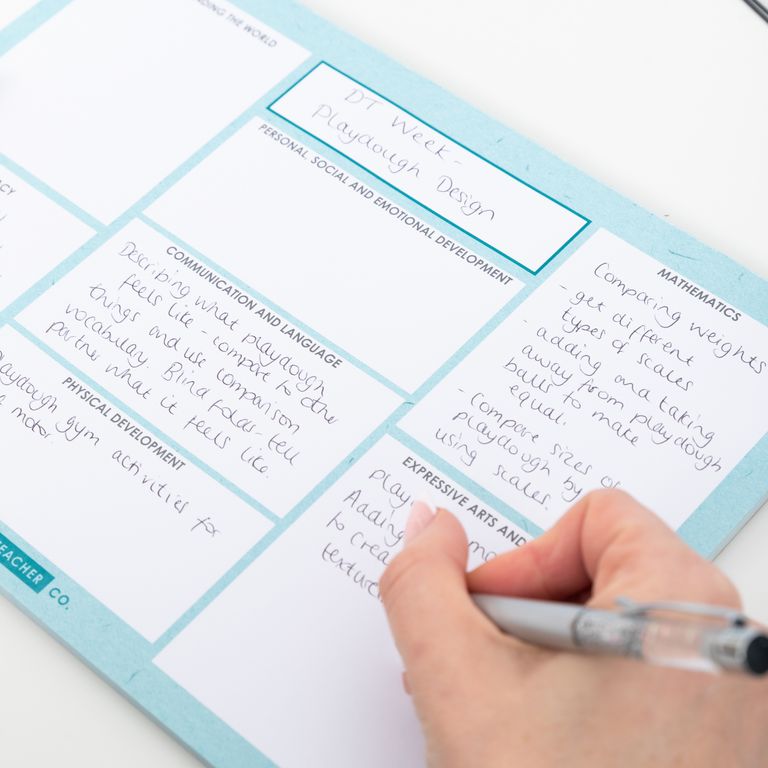 DING THE WORLD
DT Week-
Playdough Design
PERSONAL, SOCIAL AND EMOTIONAL DEVELOPMENT
MATHEMATICS
Comparing weights
- get different
types of scales
- adding and taking
away from playdough
balls to make
equal.
- Compare sizes of
playdough by
using scales.
CY
COMMUNICATION AND LANGUAGE
Describing what playdough
feels like - compare to other
things and use comparison
vocabulary. Blind folds - tell
partner what it feels like.
PHYSICAL DEVELOPMENT
playdough gym activities for
motor.
EXPRESSIVE ARTS AND
Adding
to crea
texture
TEACHER CO.